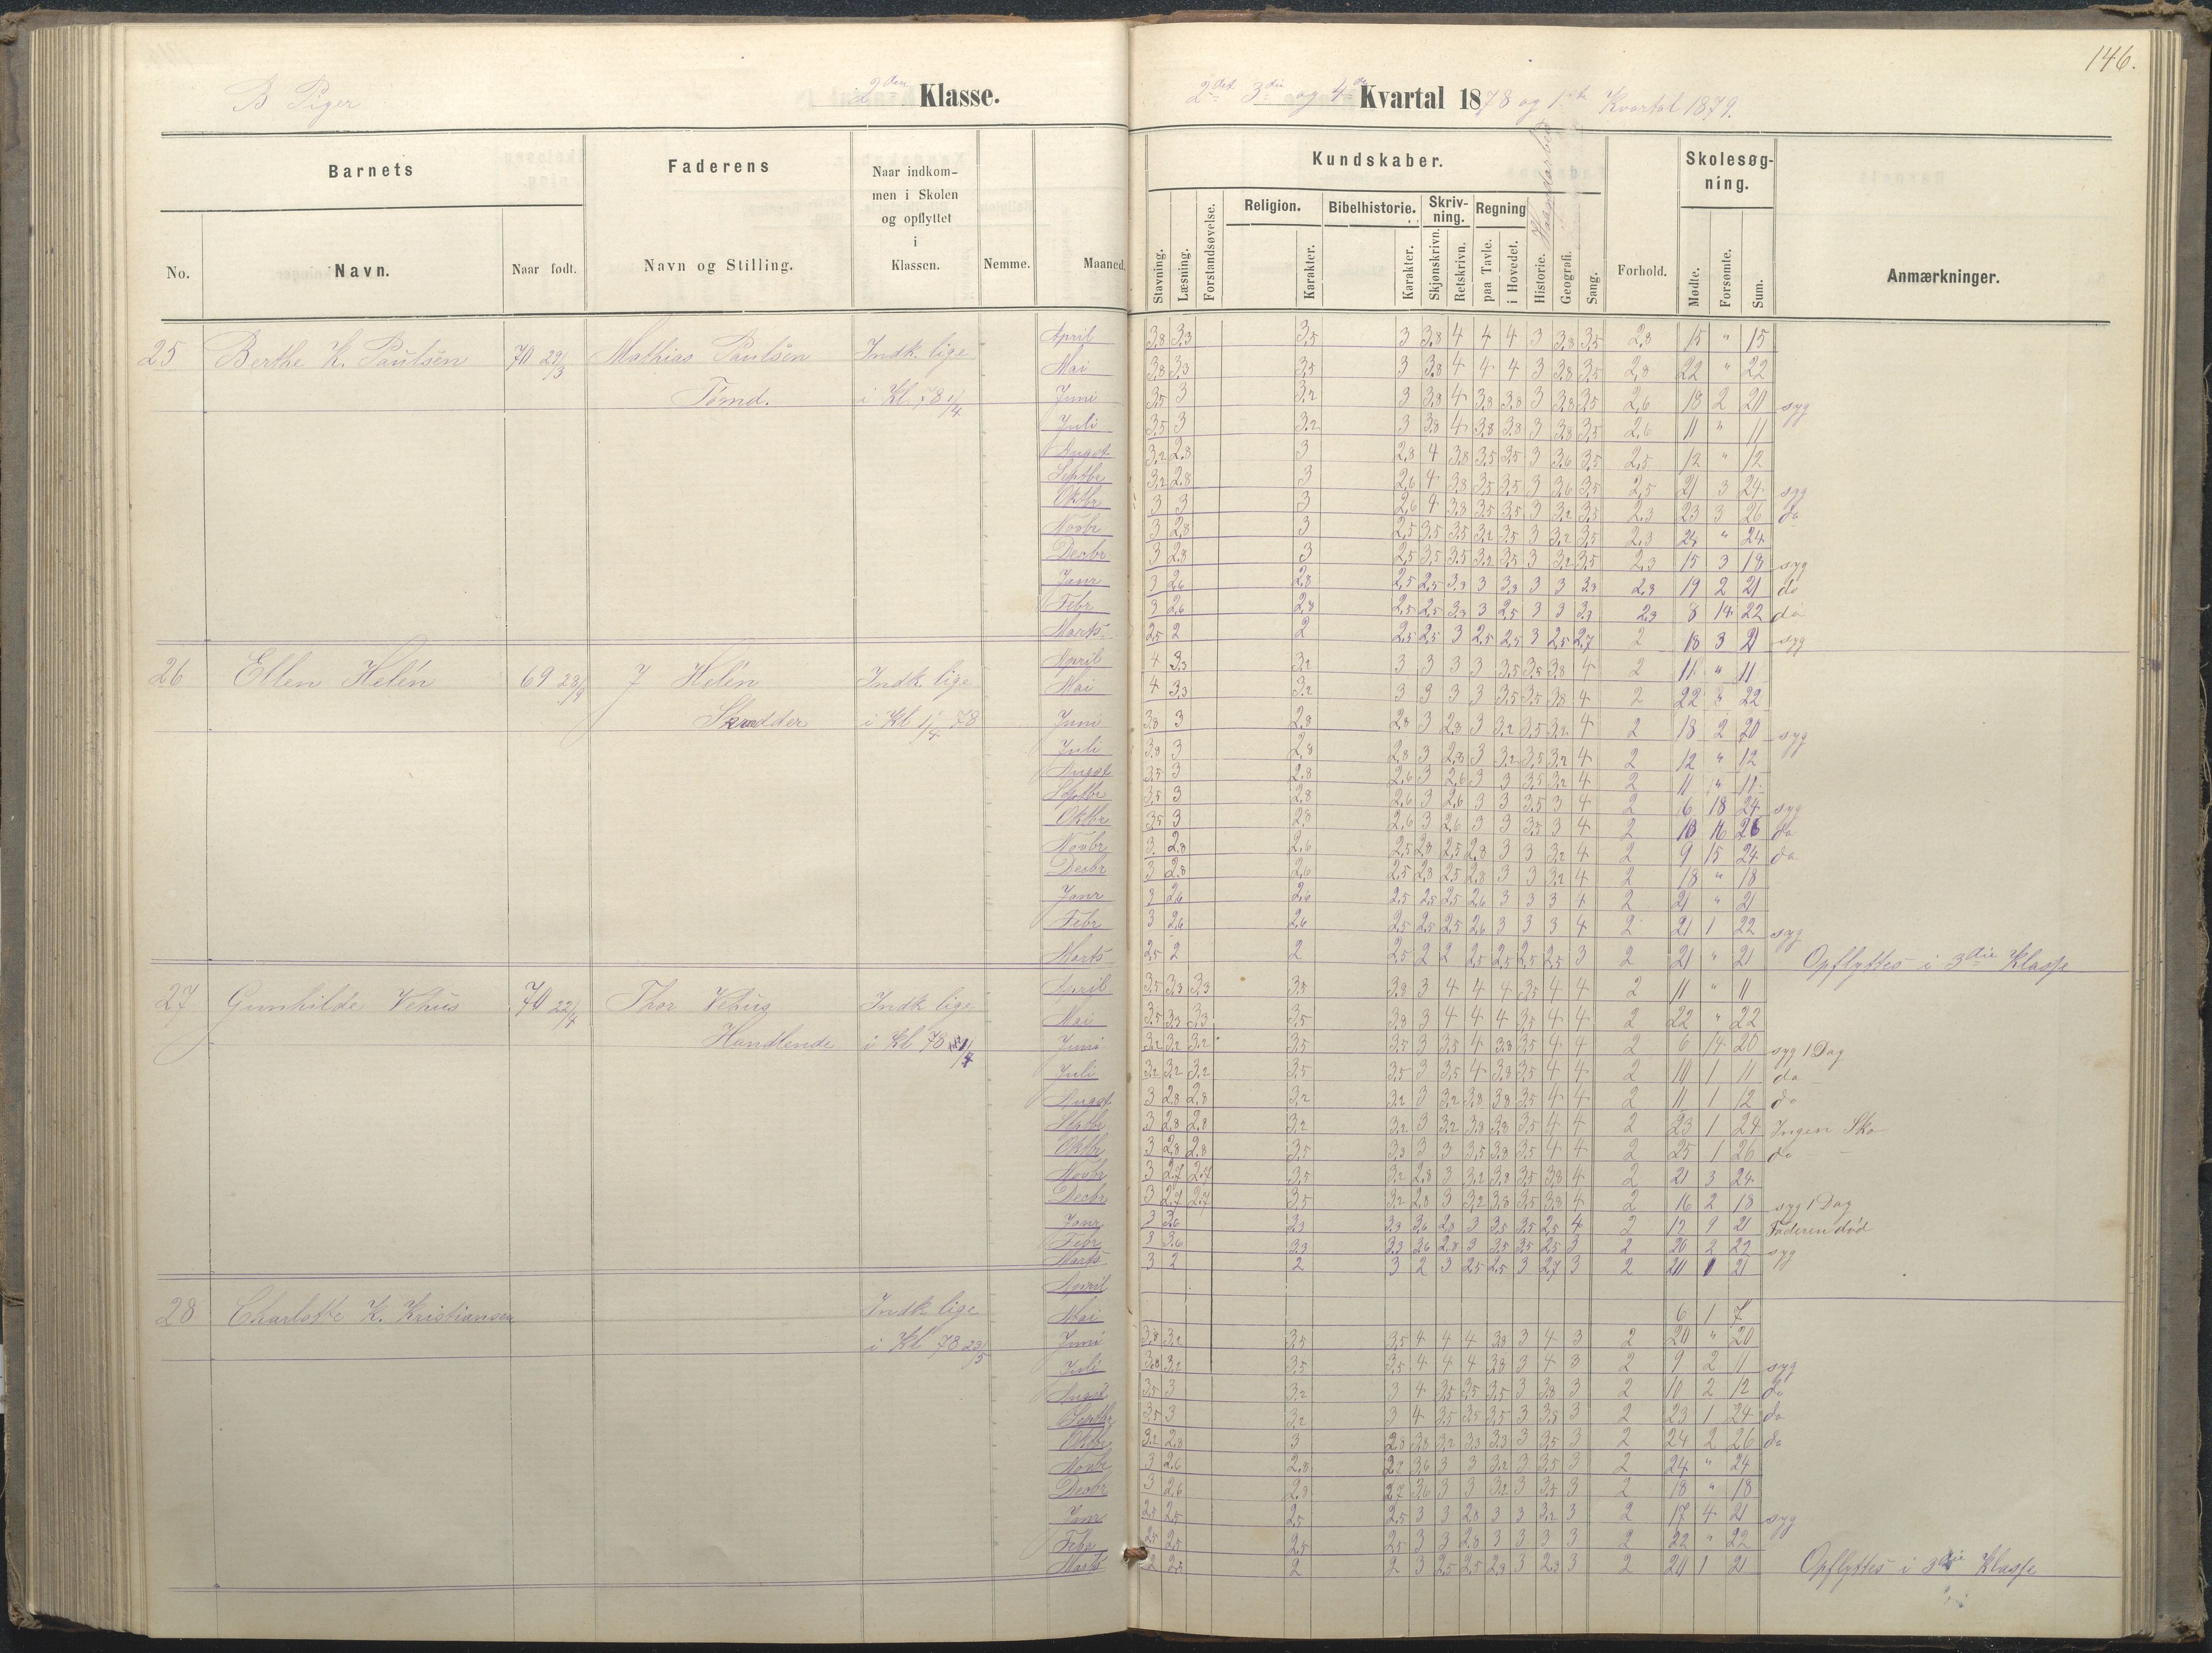 146.
B Piger 2den Klasse. 2det 3die og 4de Kvartal 1878 og 1ste Kvartal 1879.
Barnets Faderens Naar indkommen i Skolen og opflyttet i Klassen. Nemme. Maaned. Kundskaber. Forhold. Skolesøgning. Anmærkninger.
No. Navn. Naar født. Navn og Stilling.
Stavning. Læsning. Forstandsøvelse. Religion. Karakter. Bibelhistorie. Karakter. Skrivning. Skjønskrivn. Retskrivn. Regning paa Tavle. i Hovedet. Historie. Haandarbeide Geografi. Sang. Mødte. Forsømte. Sum.
25 Berthe K. Paulsen 70 29/3 Mathias Paulsen Indk. lige
Tømd. i Kl. 78 1/4
April 3,8 3,3 3,5 3 3,8 4 4 4 3 3,8 3,5 2,8 15 " 15
Mai 3,8 3,3 3,5 3 3,8 4 4 4 3 3,8 3,5 2,8 22 " 22
Juni 3,5 3 3,2 3 3,8 4 3,8 3,8 3 3,8 3,5 2,6 18 2 20 syg
Juli 3,5 3 3,2 3 3,8 4 3,8 3,8 3 3,8 3,5 2,6 11 " 11
Augst 3,2 2,8 3 2,8 4 3,8 3,5 3,5 3 3,6 3,5 2,5 12 " 12
Septbr 3,2 2,8 3 2,6 4 3,8 3,5 3,5 3 3,6 3,5 2,5 21 3 24 syg
Oktbr 3 3 3 2,6 4 3,3 3,5 3,5 3 3,2 3,5 2,3 23 3 26 do
Novbr 3 2,8 3 2,5 3,5 3,5 3,2 3,5 3 3,2 3,5 2,3 24 " 24
Decbr 3 2,8 3 2,5 3,5 3,5 3,2 3,5 3 3,2 3,5 2,3 15 3 18 syg
Janr 3 2,6 2,8 2,5 2,5 3,3 3 3,3 3 3 3,3 2,3 19 2 21 do
Febr 3 2,6 2,8 2,5 2,5 3,3 3 2,5 3 3 3,3 2,3 8 14 22 do
Marts 2,5 2 2 2,5 2,5 3 2,5 2,5 3 2,5 2,7 2 18 3 21 syg
26 Ellen Helén 69 28/9 J Helén Indk. lige
Skrædder i Kl 1/4 78
April 4 3,3 3,2 3 3 3 3 3,5 3,5 3,8 4 2 11 " 11
Mai 4 3,3 3,2 3 3 3 3 3,5 3,5 3,8 4 2 22 " 22
Juni 3,8 3 2,8 2,8 3 2,8 3 3,2 3,5 3,2 4 2 18 2 20 syg
Juli 3,8 3 2,8 2,8 3 2,8 3 3,2 3,5 3,2 4 2 12 " 12
Augst 3,5 3 2,8 2,6 3 2,6 3 3 3,5 3,2 4 2 11 " 11
Septbr 3,5 3 2,8 2,6 3 2,6 3 3 3,5 3 4 2 6 18 24 syg
Oktbr 3,5 3 2,8 2,6 3 2,6 3 3 3,5 3 4 2 10 16 26 do
Novbr 3 2,8 2,6 2,5 2,8 2,5 2,8 3 3 3,2 4 2 9 15 24 do
Decbr 3 2,8 2,6 2,5 2,8 2,5 2,8 3 3 3,2 4 2 18 " 18
Janr 3 2,6 2,6 2,5 2,5 2,5 2,6 3 3 3 4 2 21 " 21
Febr 3 2,6 2,6 2,5 2,5 2,5 2,6 3 3 3 4 2 21 1 22 syg
Marts 2,5 2 2 2,5 2 2 2,5 2,5 2,5 2,5 3 2 21 " 21 Opflyttes i 3die Klasse
27 Gunhilde Vehus 70 22/4 Thor Vehus Indk lige
Handlende i Kl 78 1/4
April 3,5 3,3 3,3 3,5 3,8 3 4 4 4 3,5 4 4 2 11 " 11
Mai 3,5 3,3 3,3 3,5 3,8 3 4 4 4 3,5 4 4 2 22 " 22
Juni 3,2 3,2 3,2 3,5 3,5 3 3,5 4 3,8 3,5 4 4 2 6 14 20 syg 1 Dag
Juli 3,2 3,2 3,2 3,5 3,5 3 3,5 4 3,8 3,5 4 4 2 10 1 11 do
Augst 3 2,8 2,8 3,2 3,2 3 3,2 3,8 3,8 3,5 4 4 2 11 1 12 do
Septbr 3 2,8 2,8 3,2 3,2 3 3,2 3,8 3,8 3,5 4 4 2 23 1 24 Ingen Sko
Oktbr 3 2,8 2,8 3,5 3,3 3 3 3,5 3,8 3,5 4 4 2 25 1 26 do
Novbr 3 2,7 2,7 3,5 3,2 2,8 3 3,2 3,8 3,5 3,8 4 2 21 3 24
Decbr 3 2,7 2,7 3,5 3,2 2,8 3 3,2 3,8 3,5 3,8 4 2 16 2 18 syg 1 Dag
Janr 3 3,6 3,3 3,3 3,6 2,8 3 3,5 3,5 2,5 4 2 12 9 21 Faderen død
Febr 3 3,6 3,3 3,3 3,6 2,8 3 3,5 3,5 2,5 3 2 20 2 22 syg
Marts 3 2 2 3 2 3 2,5 2,5 3 2,7 3 2 20 1 21
28 Charlotte K. Kristiansen Indk lige
i Kl 78 23/5
April
Mai 6 1 7
Juni 3,8 3,2 3,5 3,5 4 4 4 3,8 3 4 3 2 20 " 20
Juli 3,8 3,2 3,5 3,5 4 4 4 3,8 3 4 3 2 9 2 11 syg
Augst 3,5 3 3,2 3 4 3,5 3,5 3,5 3 3,8 3 2 10 2 12 do
Septbr 3,5 3 3,2 3 4 3,5 3,5 3,5 3 3,5 3 2 23 1 24 do
Oktbr 3,2 2,8 3 2,8 3,8 3,2 3,3 3,3 3 3,5 3 2 24 2 26 do
Novbr 3 2,6 2,8 2,7 3,6 3 3 3,2 3 3,5 3 2 24 " 24
Decbr 3 2,6 2,8 2,7 3,6 3 3 3,2 3 3,5 3 2 18 " 18
Janr 2,5 2,5 2,5 2,5 3 3 2,8 3 3 3,2 3 2 17 4 21 syg
Febr 2,5 2,5 2,5 2,5 3 3 2,8 3 3 3 3 2 22 " 22
Marts 2 2,5 2 2 3 2,5 2,5 2,3 3 2,3 3 2 20 1 21 Opflyttes i 3die Klasse